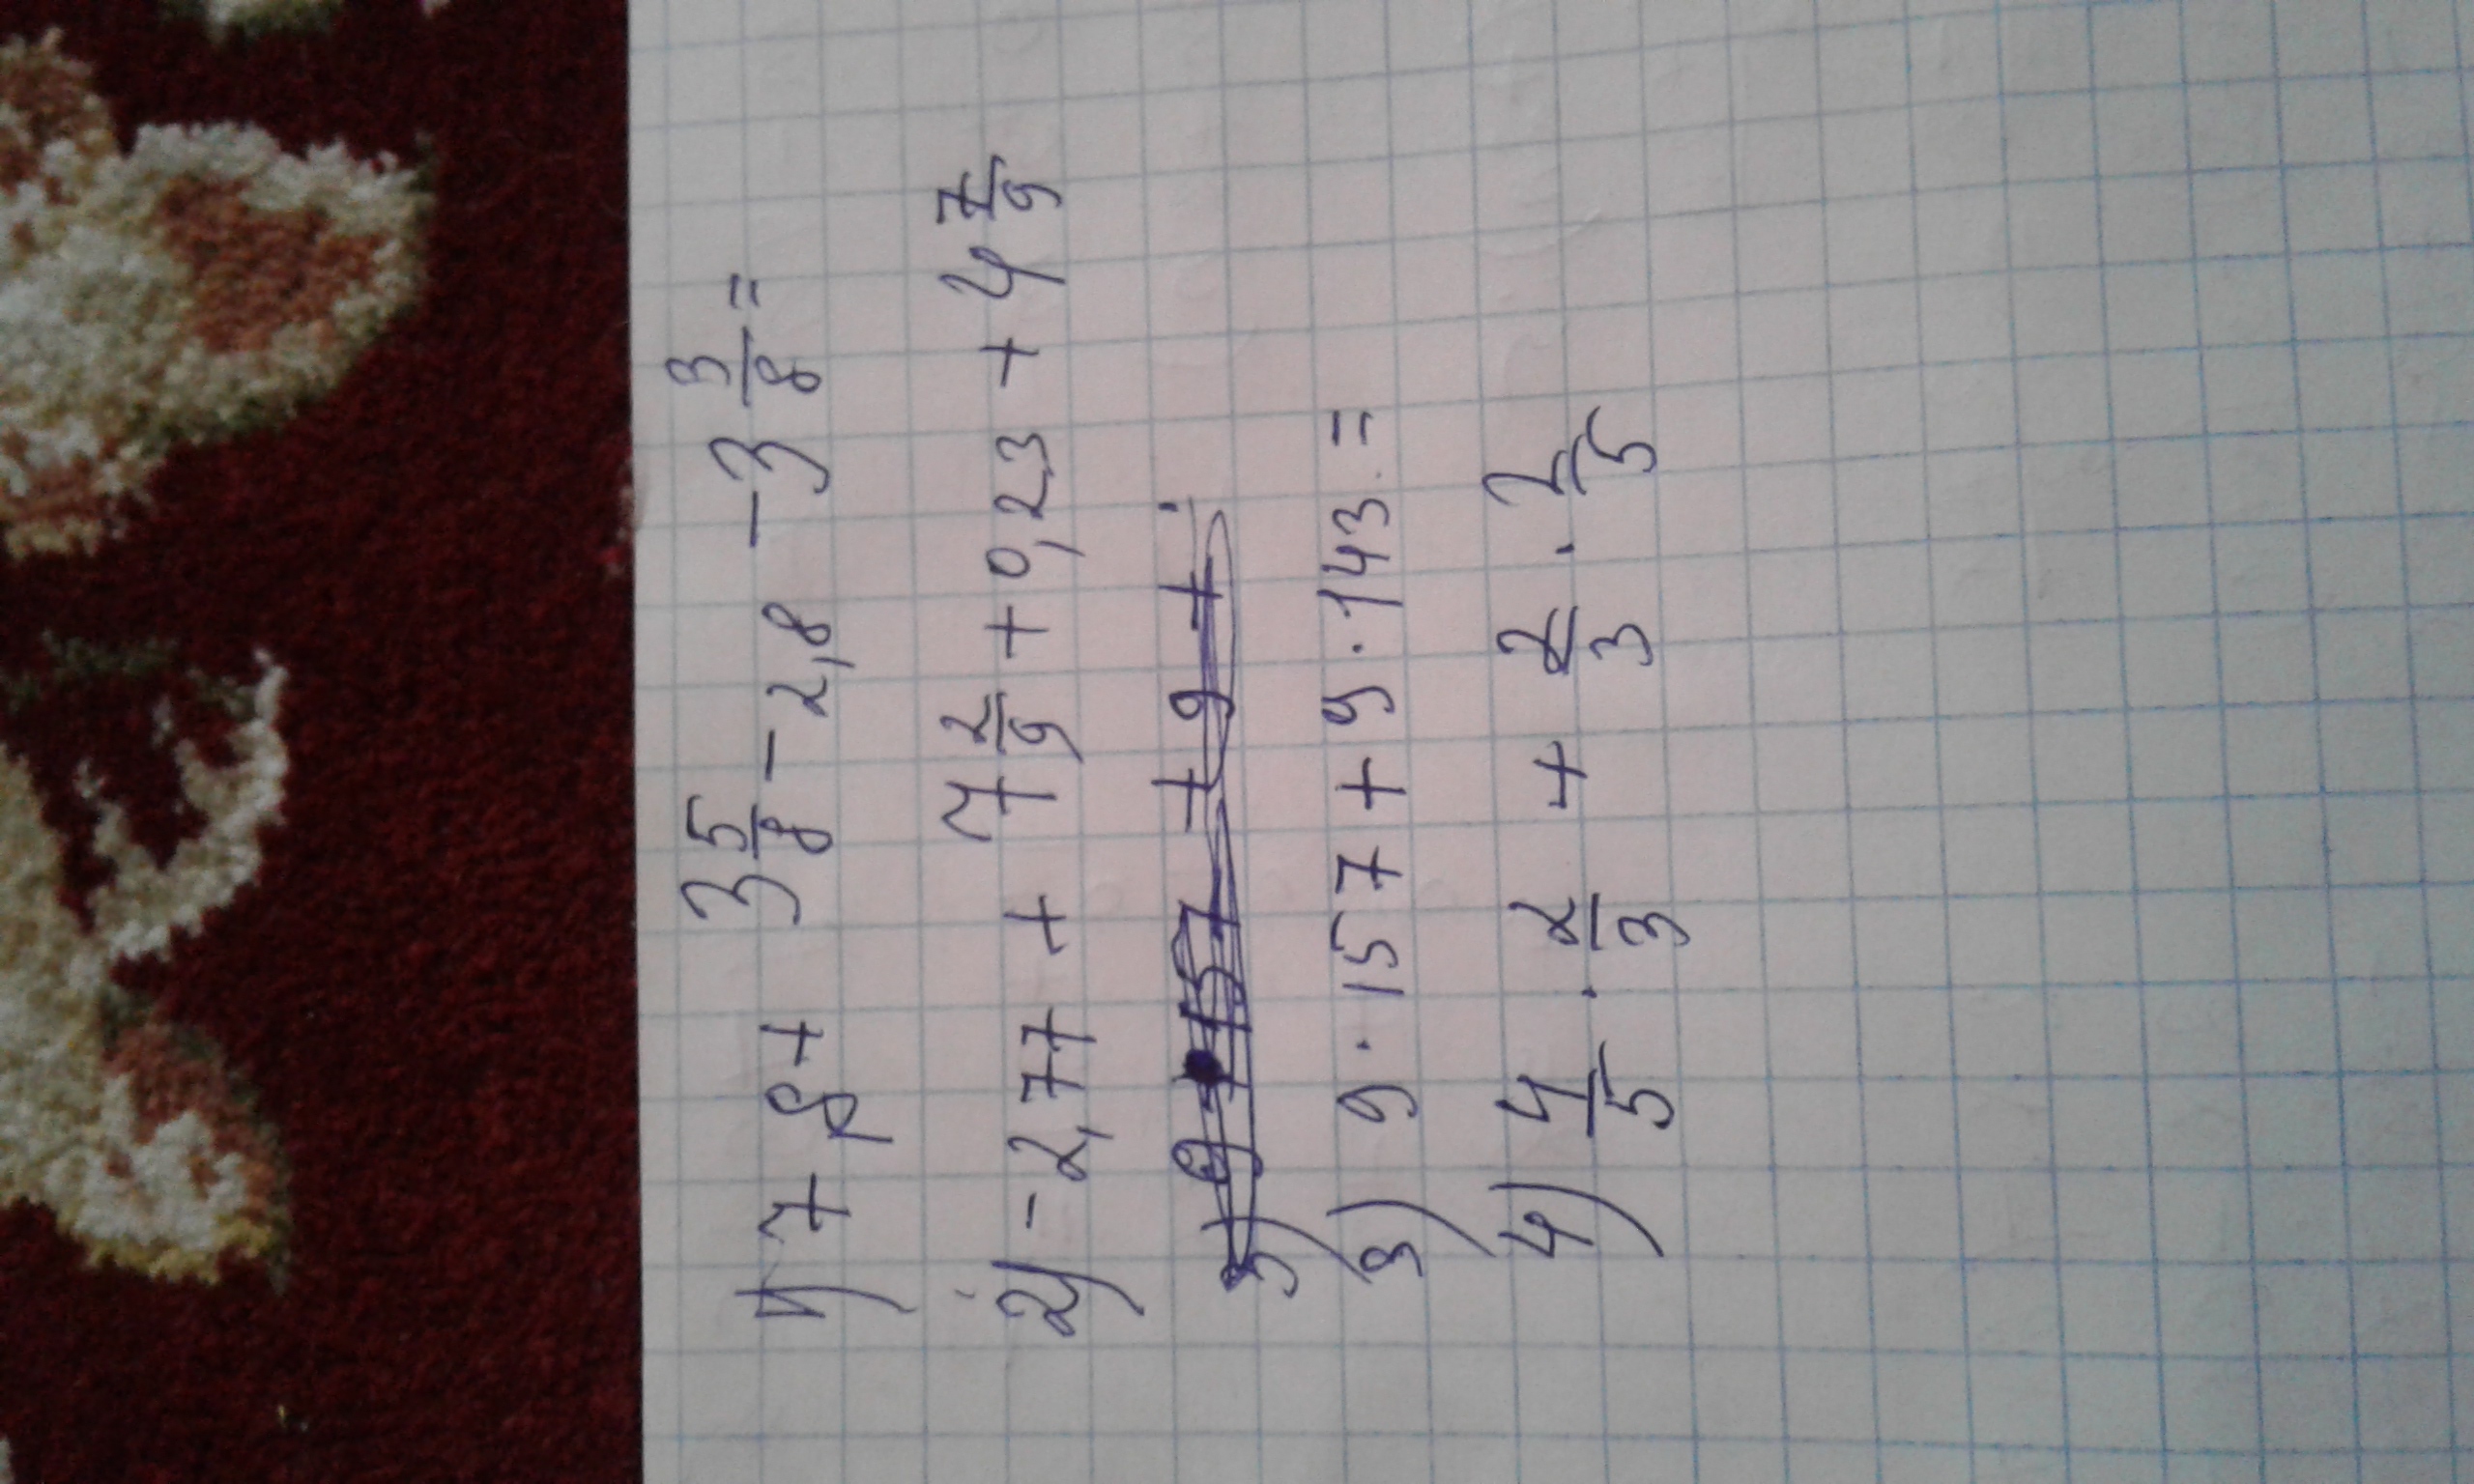 1) 7,8 + 3 5/8 - 2,8 - 3 3/8 =
2) -2,77 + 7 2/9 + 0,23 + 4 7/9
3) 9 · 157 + 9 ·
3) 9 · 157 + 9 · 143 =
4) 4/5 · 2/3 + 2/3 · 2/5